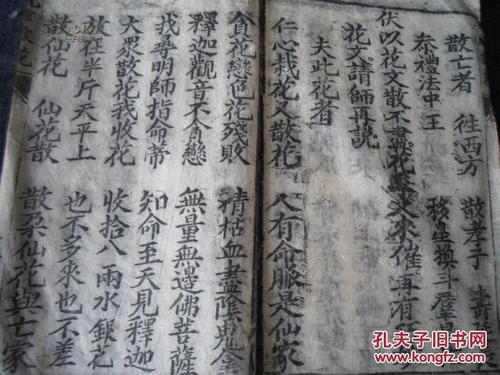 散亡者 徃西方 散孝子
㳟禮法中王 移星换斗
伏以花文散不盡
花文請師再説
夫此花者
仁心栽花又散花 人有命脈是仙家
貪花戀色花殘敗 精枯血盡陰鬼
釋迦觀音不貪戀 無量無邊佛菩薩
找尋明師指命蒂 知命至天見釋迦
大衆散花我收花 收拾八兩水銀花
放在半斤天平上 也不多來也不差
散仙花 仙花散 散朶仙花與亡家
孔夫子旧书网
www.kongfz.com